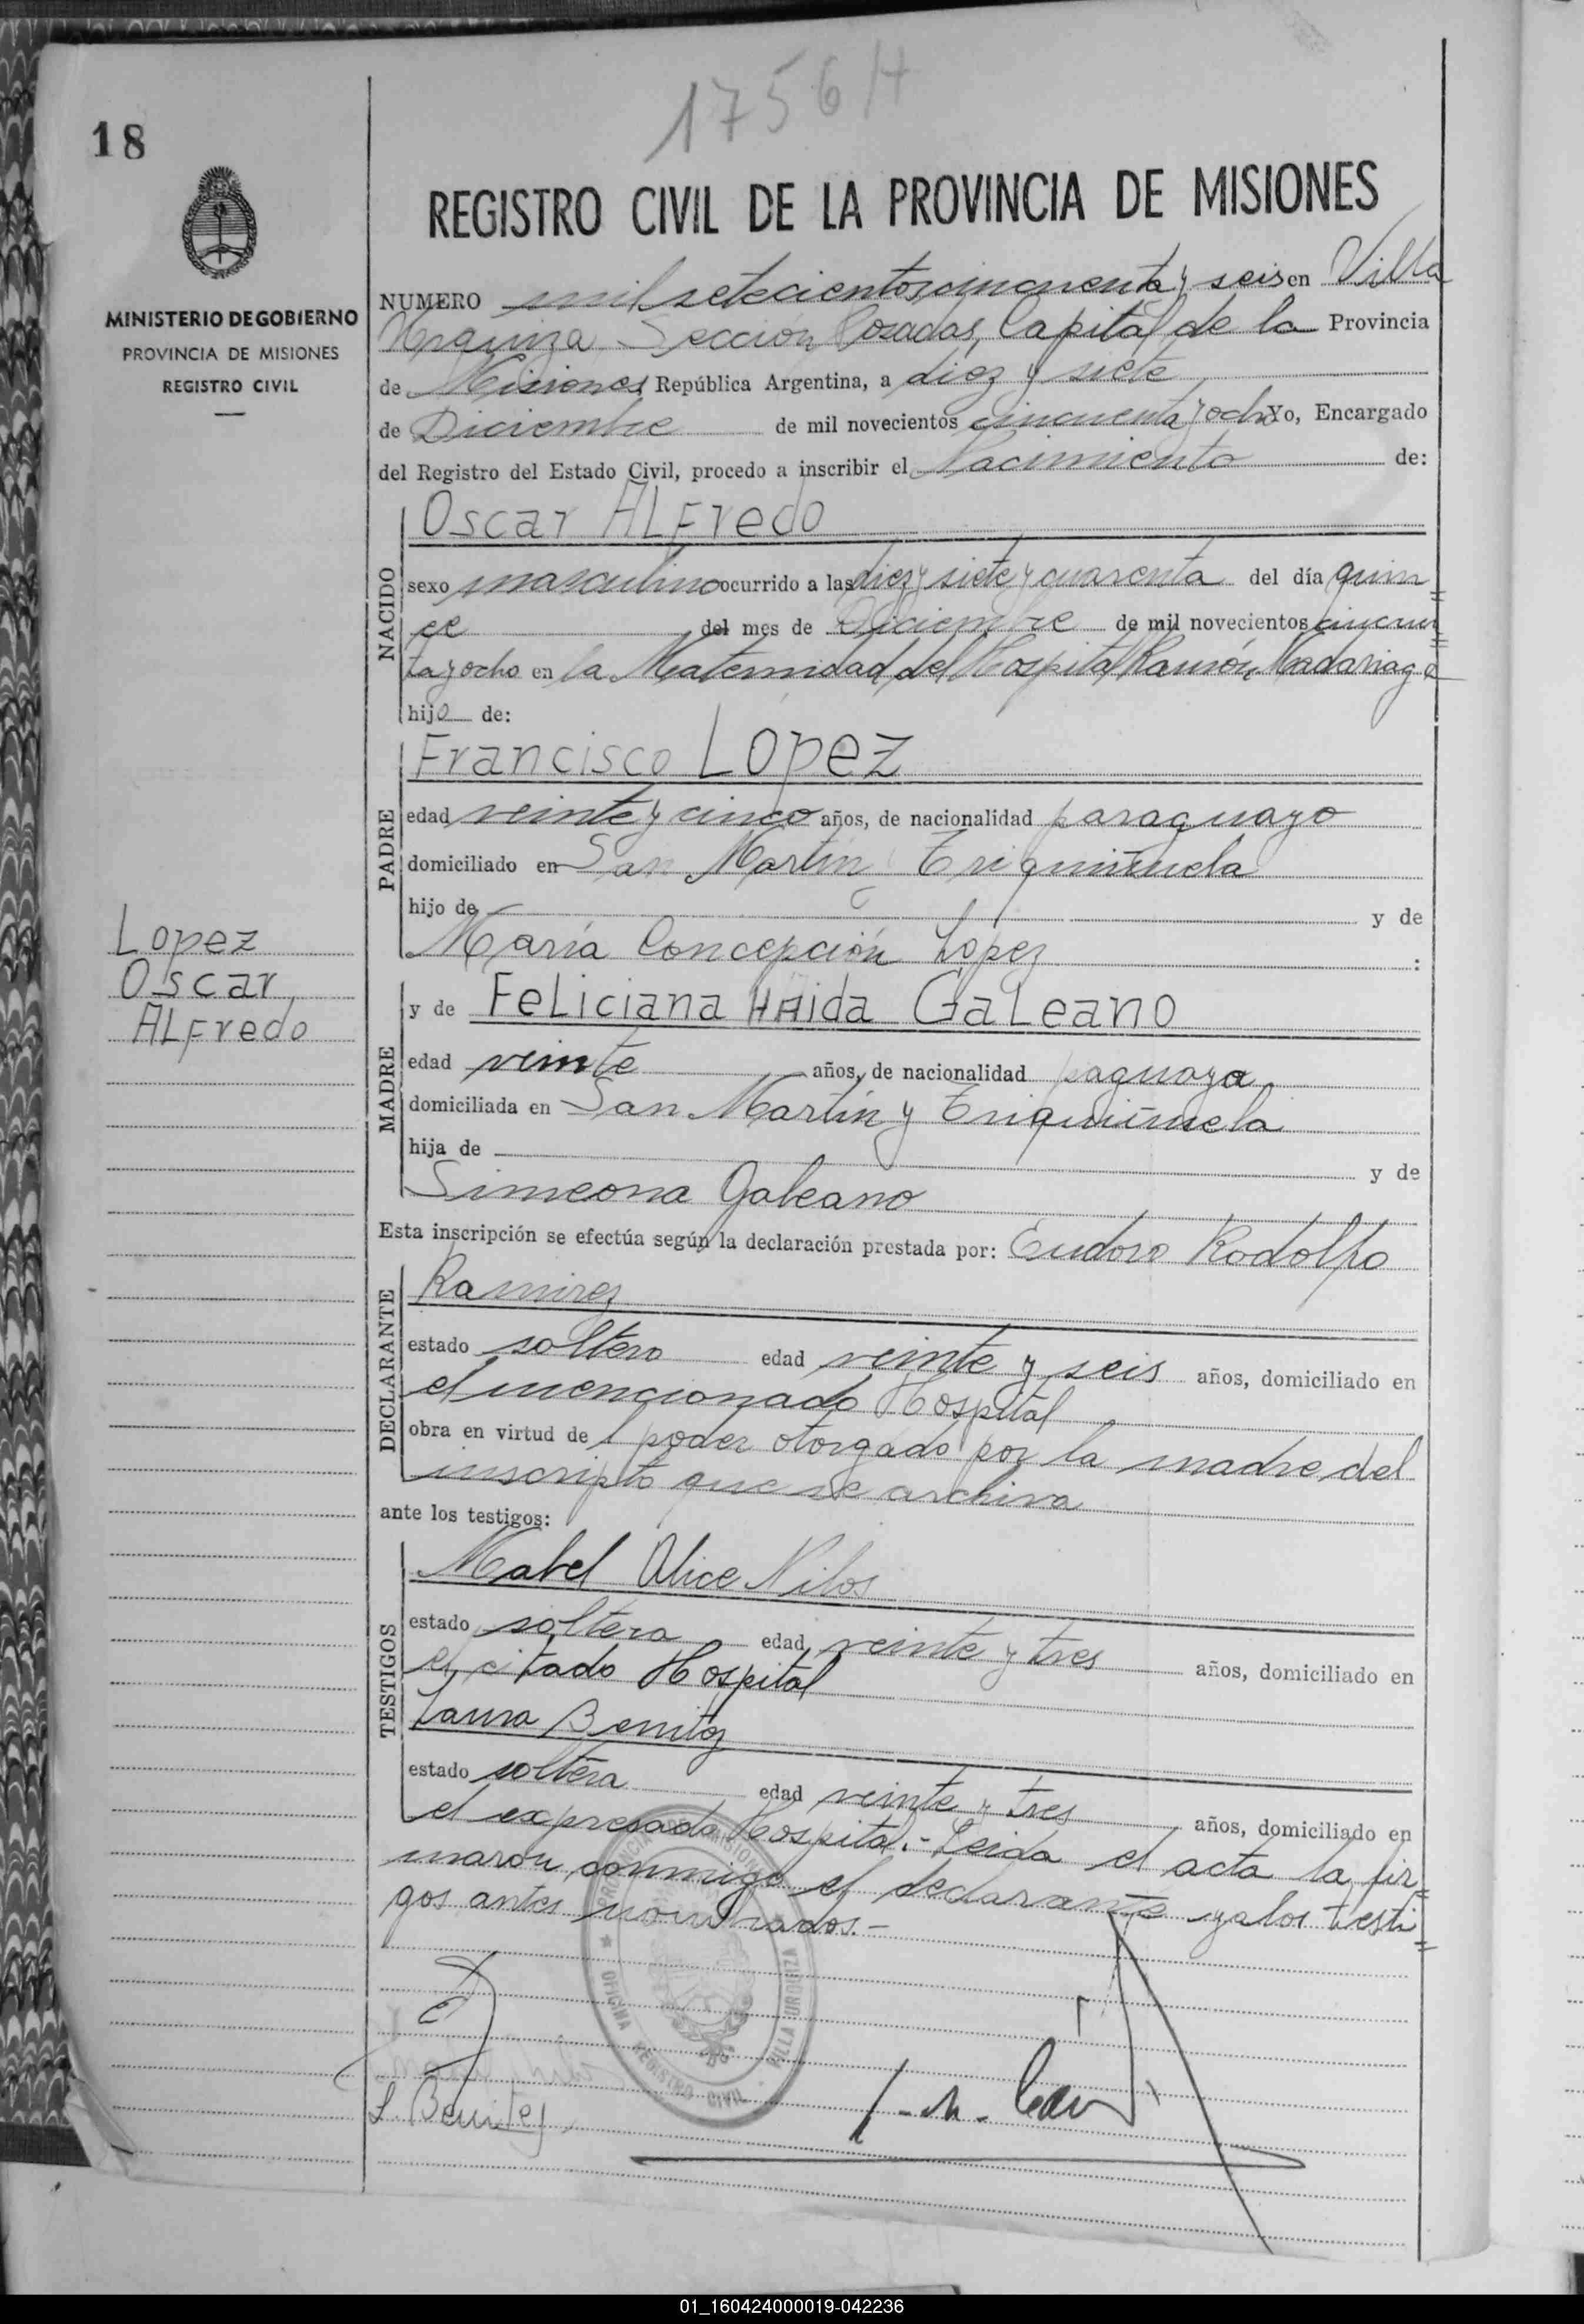 1756 H
18
REGISTRO CIVIL DE LA PROVINCIA DE MISIONES
MINISTERIO DE GOBIERNO
PROVINCIA DE MISIONES
REGISTRO CIVIL
NUMERO mil setecientos cincuenta y seis en Villa
Urquiza Sección Posadas, Capital de la Provincia
de Misiones República Argentina, a diez y siete
de Diciembre de mil novecientos cincuenta y ocho Yo, Encargado
del Registro del Estado Civil, procedo a inscribir el Nacimiento de:
NACIDO
Oscar ALFredo
sexo masculino ocurrido a las diez y siete y cuarenta del día quin
ce del mes de Diciembre de mil novecientos cincuen
ta y ocho en la Maternidad del Hospital Ramón Madariaga
hijo de:
PADRE
Francisco Lopez
edad veinte y cinco años, de nacionalidad paraguayo
domiciliado en San Martín
hijo de y de
María Concepción Lopez :
Lopez
Oscar
ALFredo
MADRE
y de FeLiciana HAida GaLeano
edad veinte años, de nacionalidad paguaya
domiciliada en San Martín y
hija de y de
Simeona Galeano
Esta inscripción se efectúa según la declaración prestada por: Eudoro Rodolfo
DECLARANTE
Ramirez
estado soltero edad veinte y seis años, domiciliado en
el mencionado Hospital
obra en virtud de l poder otorgado por la madre del
inscripto que se archiva
ante los testigos:
TESTIGOS
Mabel Alice
estado soltera edad veinte y tres años, domiciliado en
el citado Hospital
Laura Benitez
estado soltera edad veinte y tres años, domiciliado en
el expresado Hospital.- Leida el acta la fir
maron conmigo el declarante y a los testi
gos antes nombrados.-
PROVINCIA DE MISIONES
OFICINA REGISTRO CIVIL VILLA URQUIZA
L. Benitez
01_160424000019-042236